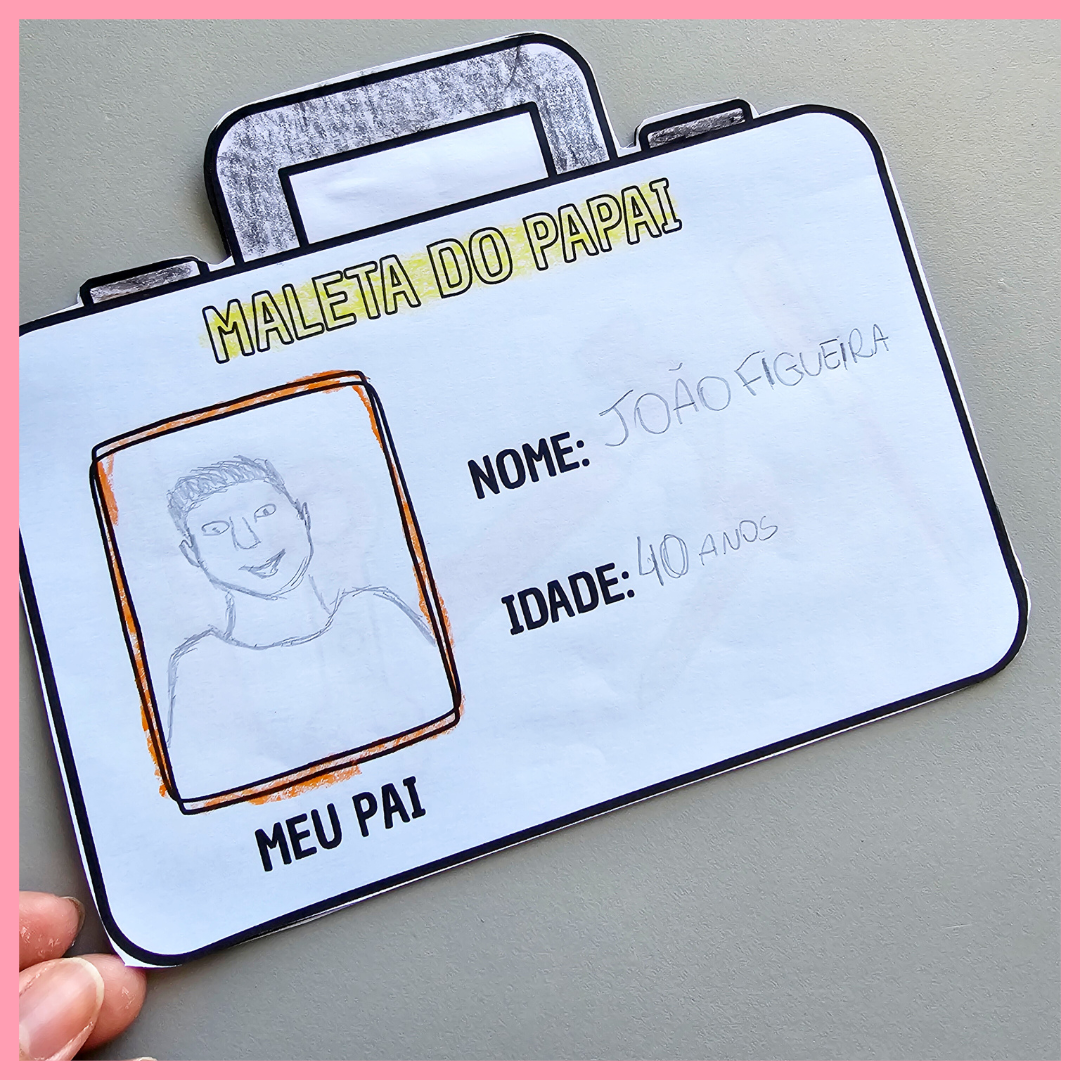 MALETA DO PAPAI
NOME: JOÃO FIGUEIRA
IDADE: 40 ANOS
MEU PAI